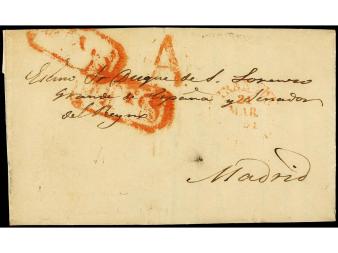 A
Exmo Sr Duque de S. Lorenzo
Grande de España y Senador
del Reyno
MAR.
Madrid